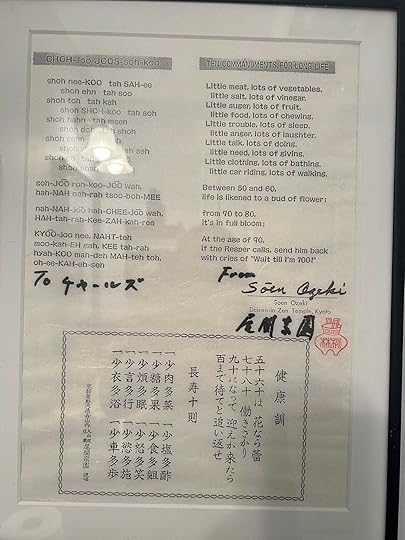 CHOH-joo JOOS-soh-koo
shoh nee-KOO tah SAH-ee
shoh ehn tah soo
shoh toh tah kah
shoh SHOH-koo tah soh
shoh hahn tah meen
shoh
shoh
shoh
goh-JOO roh-koo-JOO wah,
hah-NAH nah-rah tsoo-boh-MEE
nah-NAH-joo hah-CHEE-joo wah,
HAH-tah-rah-Kee-ZAH-kah-ree
KYOO-joo nee, NAHT-teh
moo-kah-EH gah, KEE tah-rah
hyah-KOO mah-deh MAH-teh toh,
oh-ee-KAH-eh-seh
TEN COMMANDMENTS FOR LONG LIFE
Little meat, lots of vegetables.
little salt, lots of vinegar.
Little sugar, lots of fruit.
little food, lots of chewing.
Little trouble, lots of sleep.
little anger, lots of laughter.
Little talk, lots of doing.
little need, lots of giving.
Little clothing, lots of bathing.
little car riding, lots of walking.
Between 50 and 60,
life is likened to a bud of flower;
from 70 to 80,
it's in full bloom;
At the age of 90,
if the Reaper calls, send him back
with cries of "Wait till I'm 100!"
To チャールズ
From
Sōen Ozeki
Soen Ozeki
Daisen-in Zen Temple, Kyoto
健康訓
五十六十は 花なら蕾
七十八十 働きざかり
九十になって 迎えが来たら
百まで待てと追い返せ
長寿十則
一少肉多菜 一少塩多酢
一少糖多果 一少食多齟
一少煩多眠 一少怒多笑
一少言多行 一少慾多施
一少衣多浴 一少車多歩